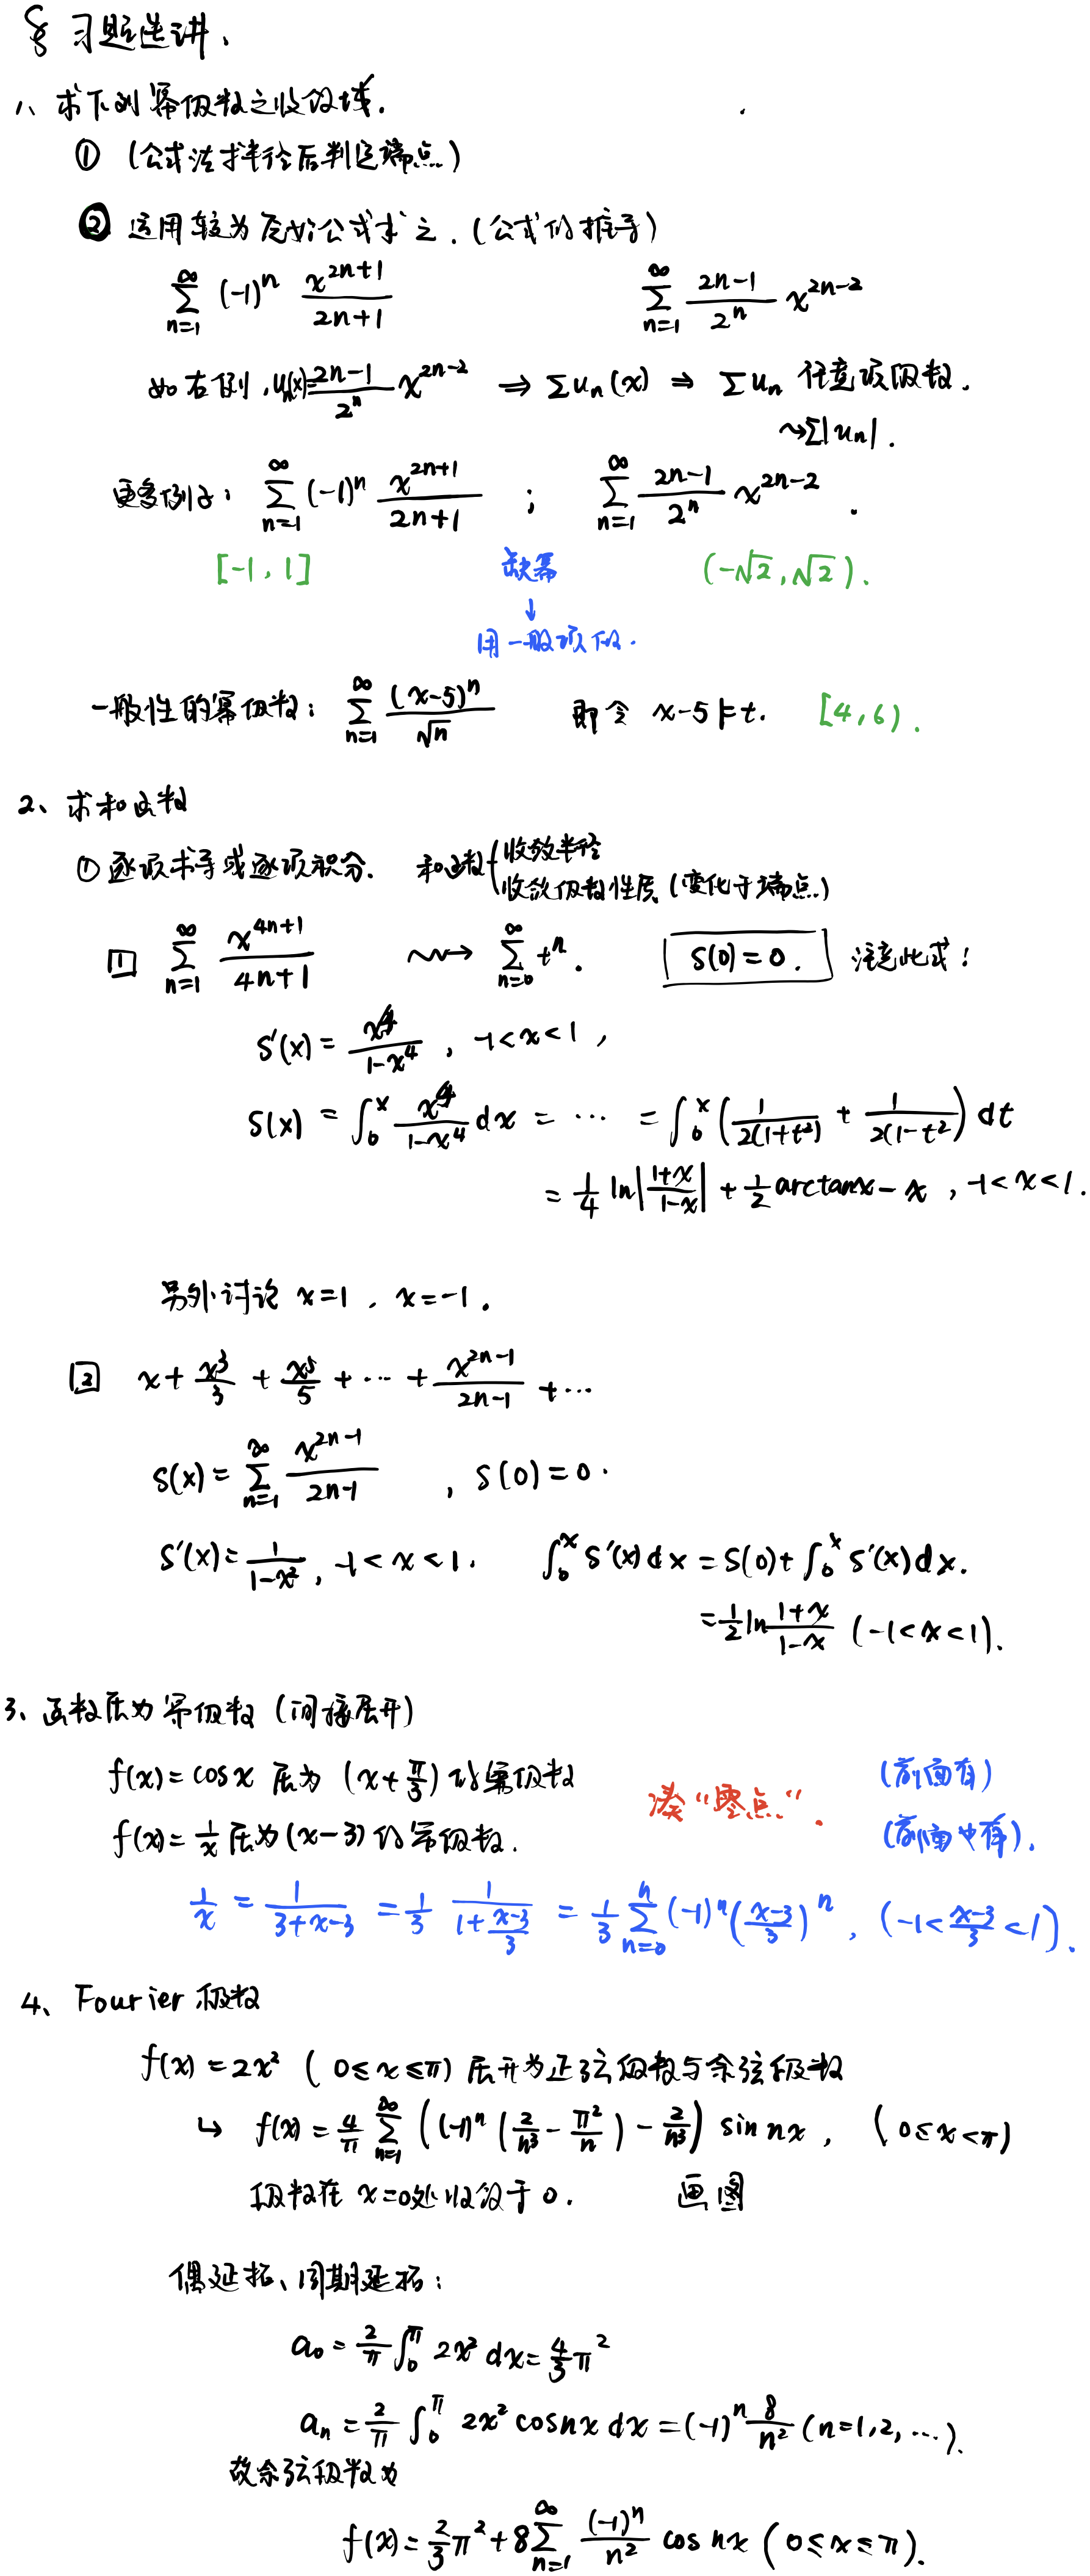 § 习题选讲、
1、求下列幂级数之收敛域.
① (公式法求半径后判定端点)
② 运用较为原始公式求之.(公式的推导)
\sum_{n=1}^{\infty} (-1)^n \frac{x^{2n+1}}{2n+1}    \sum_{n=1}^{\infty} \frac{2n-1}{2^n} x^{2n-2}
如右例,u_n(x)=\frac{2n-1}{2^n} x^{2n-2} ⇒ Σu_n(x) ⇒ Σu_n 任意项级数.
⇝Σ|u_n|.
更多例子: \sum_{n=1}^{\infty} (-1)^n \frac{x^{2n+1}}{2n+1} ; \sum_{n=1}^{\infty} \frac{2n-1}{2^n} x^{2n-2}.
[-1,1]    缺幂    (-√2,√2).
↓
用一般项级.
一般性的幂级数: \sum_{n=1}^{\infty} \frac{(x-5)^n}{\sqrt{n}}    即令 x-5=t.    [4,6).
2、求和函数
① 逐项求导或逐项积分. 和函数{收敛半径
收敛级数性质(变化于端点)
[1] \sum_{n=1}^{\infty} \frac{x^{4n+1}}{4n+1} ⇝ \sum_{n=0}^{\infty} t^n.    S(0)=0.    注意此式!
S'(x)=\frac{x^4}{1-x^4}, -1<x<1,
S(x)=\int_0^x \frac{x^4}{1-x^4}dx = ⋯ = \int_0^x (\frac{1}{2(1+t^2)}+\frac{1}{2(1-t^2)})dt
=\frac{1}{4} ln|\frac{1+x}{1-x}|+\frac{1}{2}arctanx-x, -1<x<1.
另外讨论 x=1, x=-1.
[2] x+\frac{x^3}{3}+\frac{x^5}{5}+⋯+\frac{x^{2n-1}}{2n-1}+⋯
S(x)=\sum_{n=1}^{\infty} \frac{x^{2n-1}}{2n-1}, S(0)=0.
S'(x)=\frac{1}{1-x^2}, -1<x<1.    \int_0^x S'(x)dx=S(0)+\int_0^x S'(x)dx.
=\frac{1}{2}ln\frac{1+x}{1-x} (-1<x<1).
3、函数展为幂级数(间接展开)
f(x)=cosx 展为 (x+\frac{π}{3}) 的幂级数    凑“零点”.    (前面有)
f(x)=\frac{1}{x} 展为(x-3)的幂级数.    (前面也有).
\frac{1}{x}=\frac{1}{3+x-3}=\frac{1}{3} \frac{1}{1+\frac{x-3}{3}}=\frac{1}{3}\sum_{n=0}^{n}(-1)^n(\frac{x-3}{3})^n, (-1<\frac{x-3}{3}<1).
4、Fourier 级数
f(x)=2x^2 (0≤x≤π) 展开为正弦级数与余弦级数
↳ f(x)=\frac{4}{π}\sum_{n=1}^{\infty}((-1)^n(\frac{2}{n^3}-\frac{π^2}{n})-\frac{2}{n^3}) sin nx, (0≤x<π)
级数在 x=0处收敛于0.    画图
偶延拓、周期延拓:
a_0=\frac{2}{π}\int_0^π 2x^2 dx=\frac{4}{3}π^2
a_n=\frac{2}{π}\int_0^π 2x^2 cosnx dx=(-1)^n\frac{8}{n^2} (n=1,2,⋯).
故余弦级数为
f(x)=\frac{2}{3}π^2+8\sum_{n=1}^{\infty}\frac{(-1)^n}{n^2} cos nx (0≤x≤π).